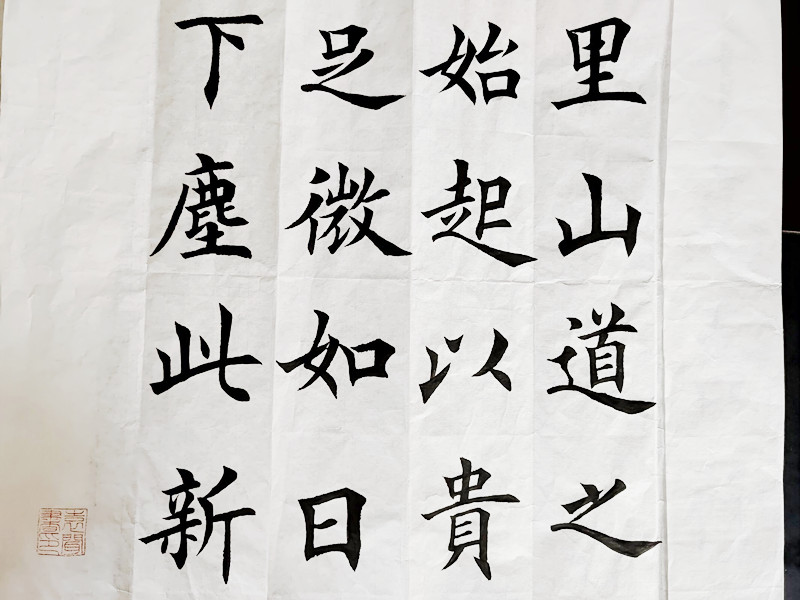 里山道之
始起以貴
足微如日
下塵此新